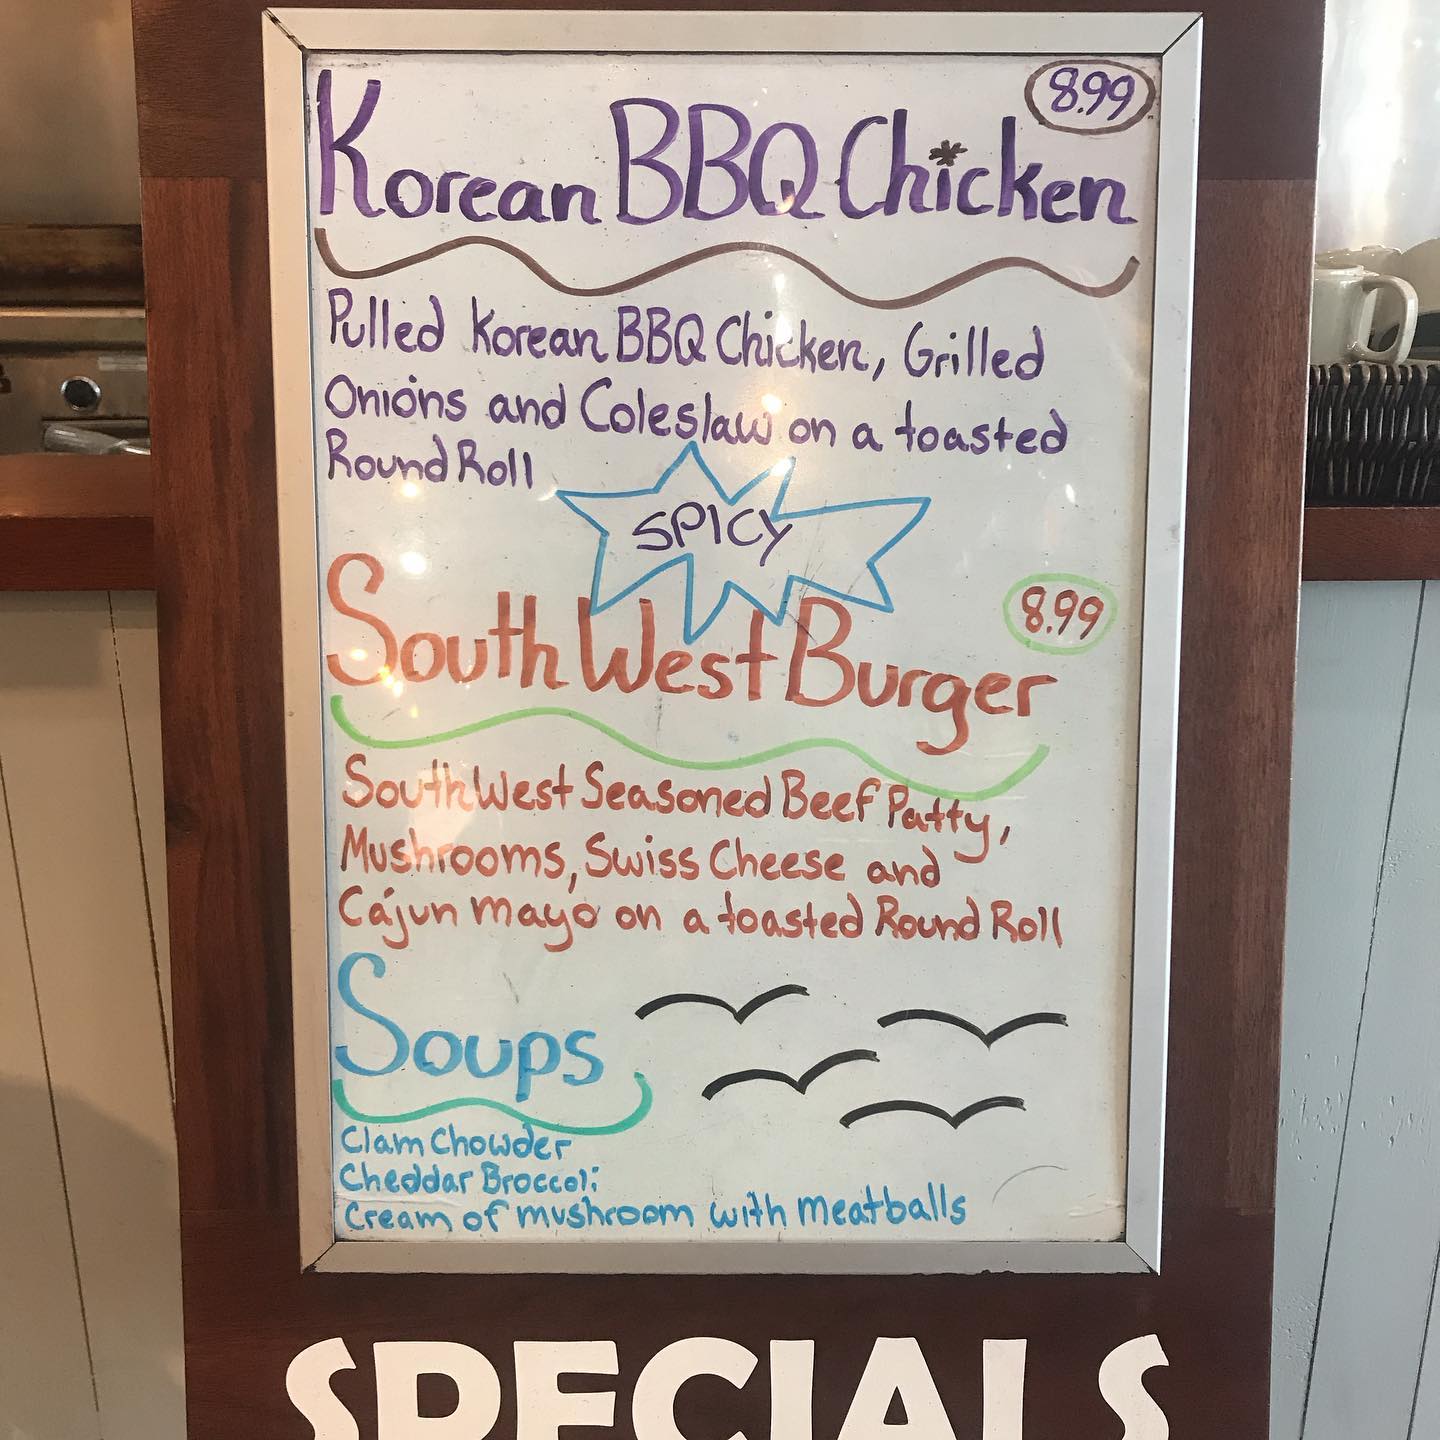 8.99
Korean BBQ Chicken
Pulled Korean BBQ Chicken, Grilled
Onions and Coleslaw on a toasted
Round Roll
SPICY
8.99
South West Burger
SouthWest Seasoned Beef Patty,
Mushrooms, Swiss Cheese and
Cajun mayo on a toasted Round Roll
Soups
Clam Chowder
Cheddar Broccoli
Cream of mushroom with meatballs
SPECIALS